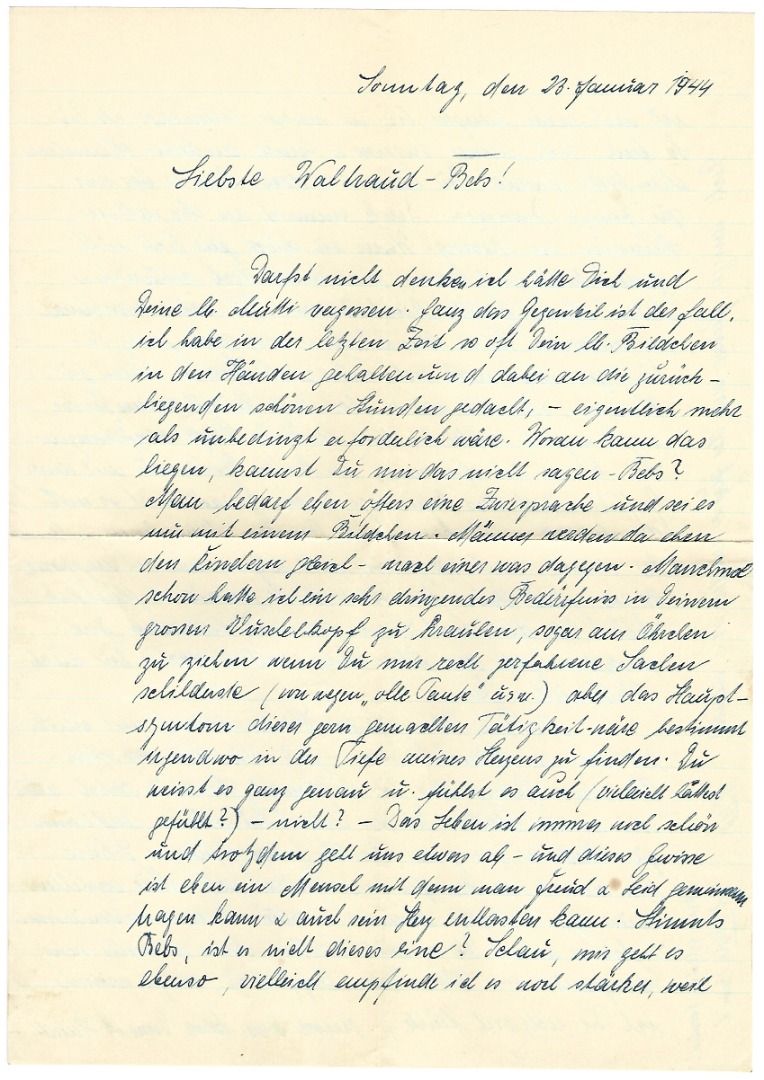 Sonntag, den 23. Januar 1944
Liebste Waltraud - Bebs!
Darfst nicht denken ich hätte Dich und
Deine lb. Mutti vergessen. Ganz das Gegenteil ist der Fall,
ich habe in der letzten Zeit so oft Dein lb. Bildchen
in den Händen gehalten und dabei an die zurück-
liegenden schönen Stunden gedacht, - eigentlich mehr
als unbedingt erforderlich wäre. Woran kann das
liegen, kannst Du mir das nicht sagen - Bebs?
Man bedarf eben öfters eine Zwiesprache und sei es
nur mit einem Bildchen. Männer werden da eben
den Kindern gleich - mach einer was dagegen. Manchmal
schon hatte ich ein sehr dringendes Bedürfniss in Deinem
grossen Wuschelkopf zu kraulen, sogar am Öhrchen
zu ziehen wenn Du mir recht zerfahrene Sachen
schilderste (von wegen „olle Tante" usw.) aber das Haupt-
symtom dieser gern gemachten Tätigkeit wäre bestimmt
irgendwo in der Tiefe meines Herzens zu finden. Du
weisst es ganz genau u. fühlst es auch (vielleicht hättest
gefühlt?) - nicht? - Das Leben ist immer noch schön
und trotzdem geht uns etwas ab - und dieses Gewisse
ist eben ein Mensch mit dem man Freud & Leid gemeinsam
tragen kann & auch sein Herz entlasten kann. Stimmts
Bebs, ist es nicht dieses eine? Schau, mir geht es
ebenso, vielleicht empfinde ich es noch stärker, weil